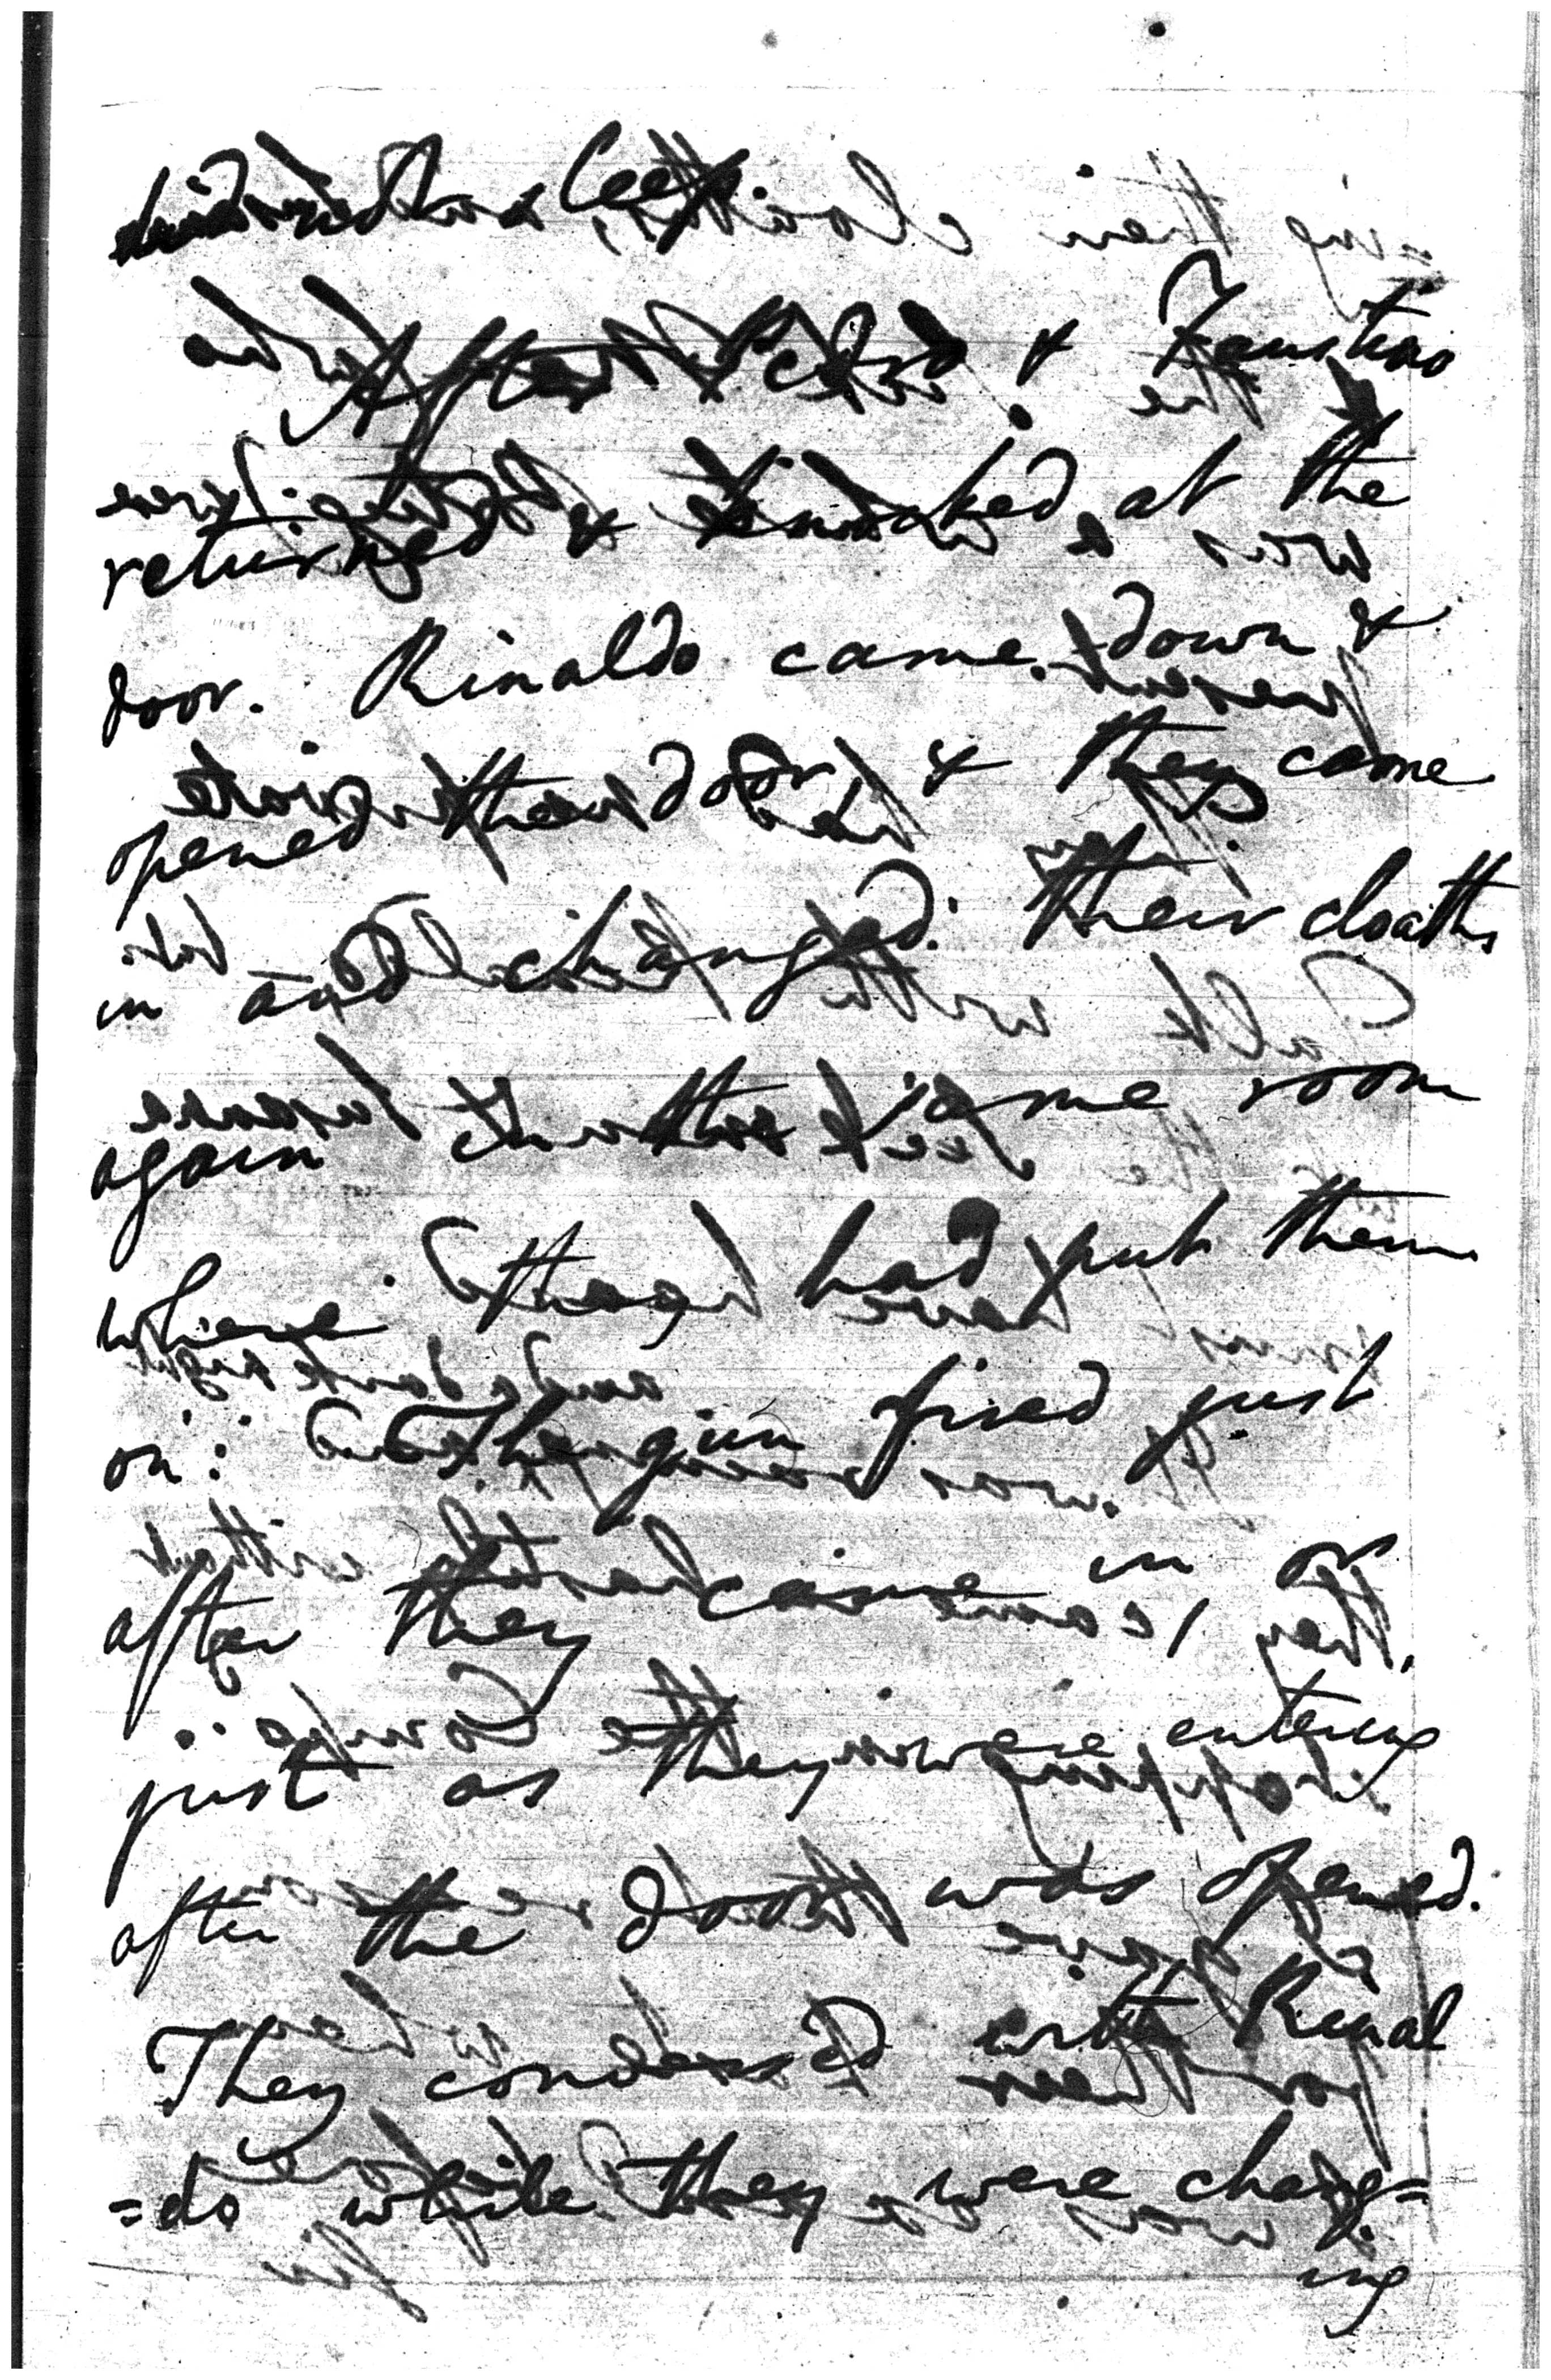 asleep.
After Celso & Faustino
returned & knocked at the
door. Rinaldo came down &
opened the door & they came
in and changed their cloaths
again in the same room
where they had put them
on: The gun fired just
after they came in or
just as they were entering
after the door was opened.
They conversed with Rinal
=do while they were chang=
ing